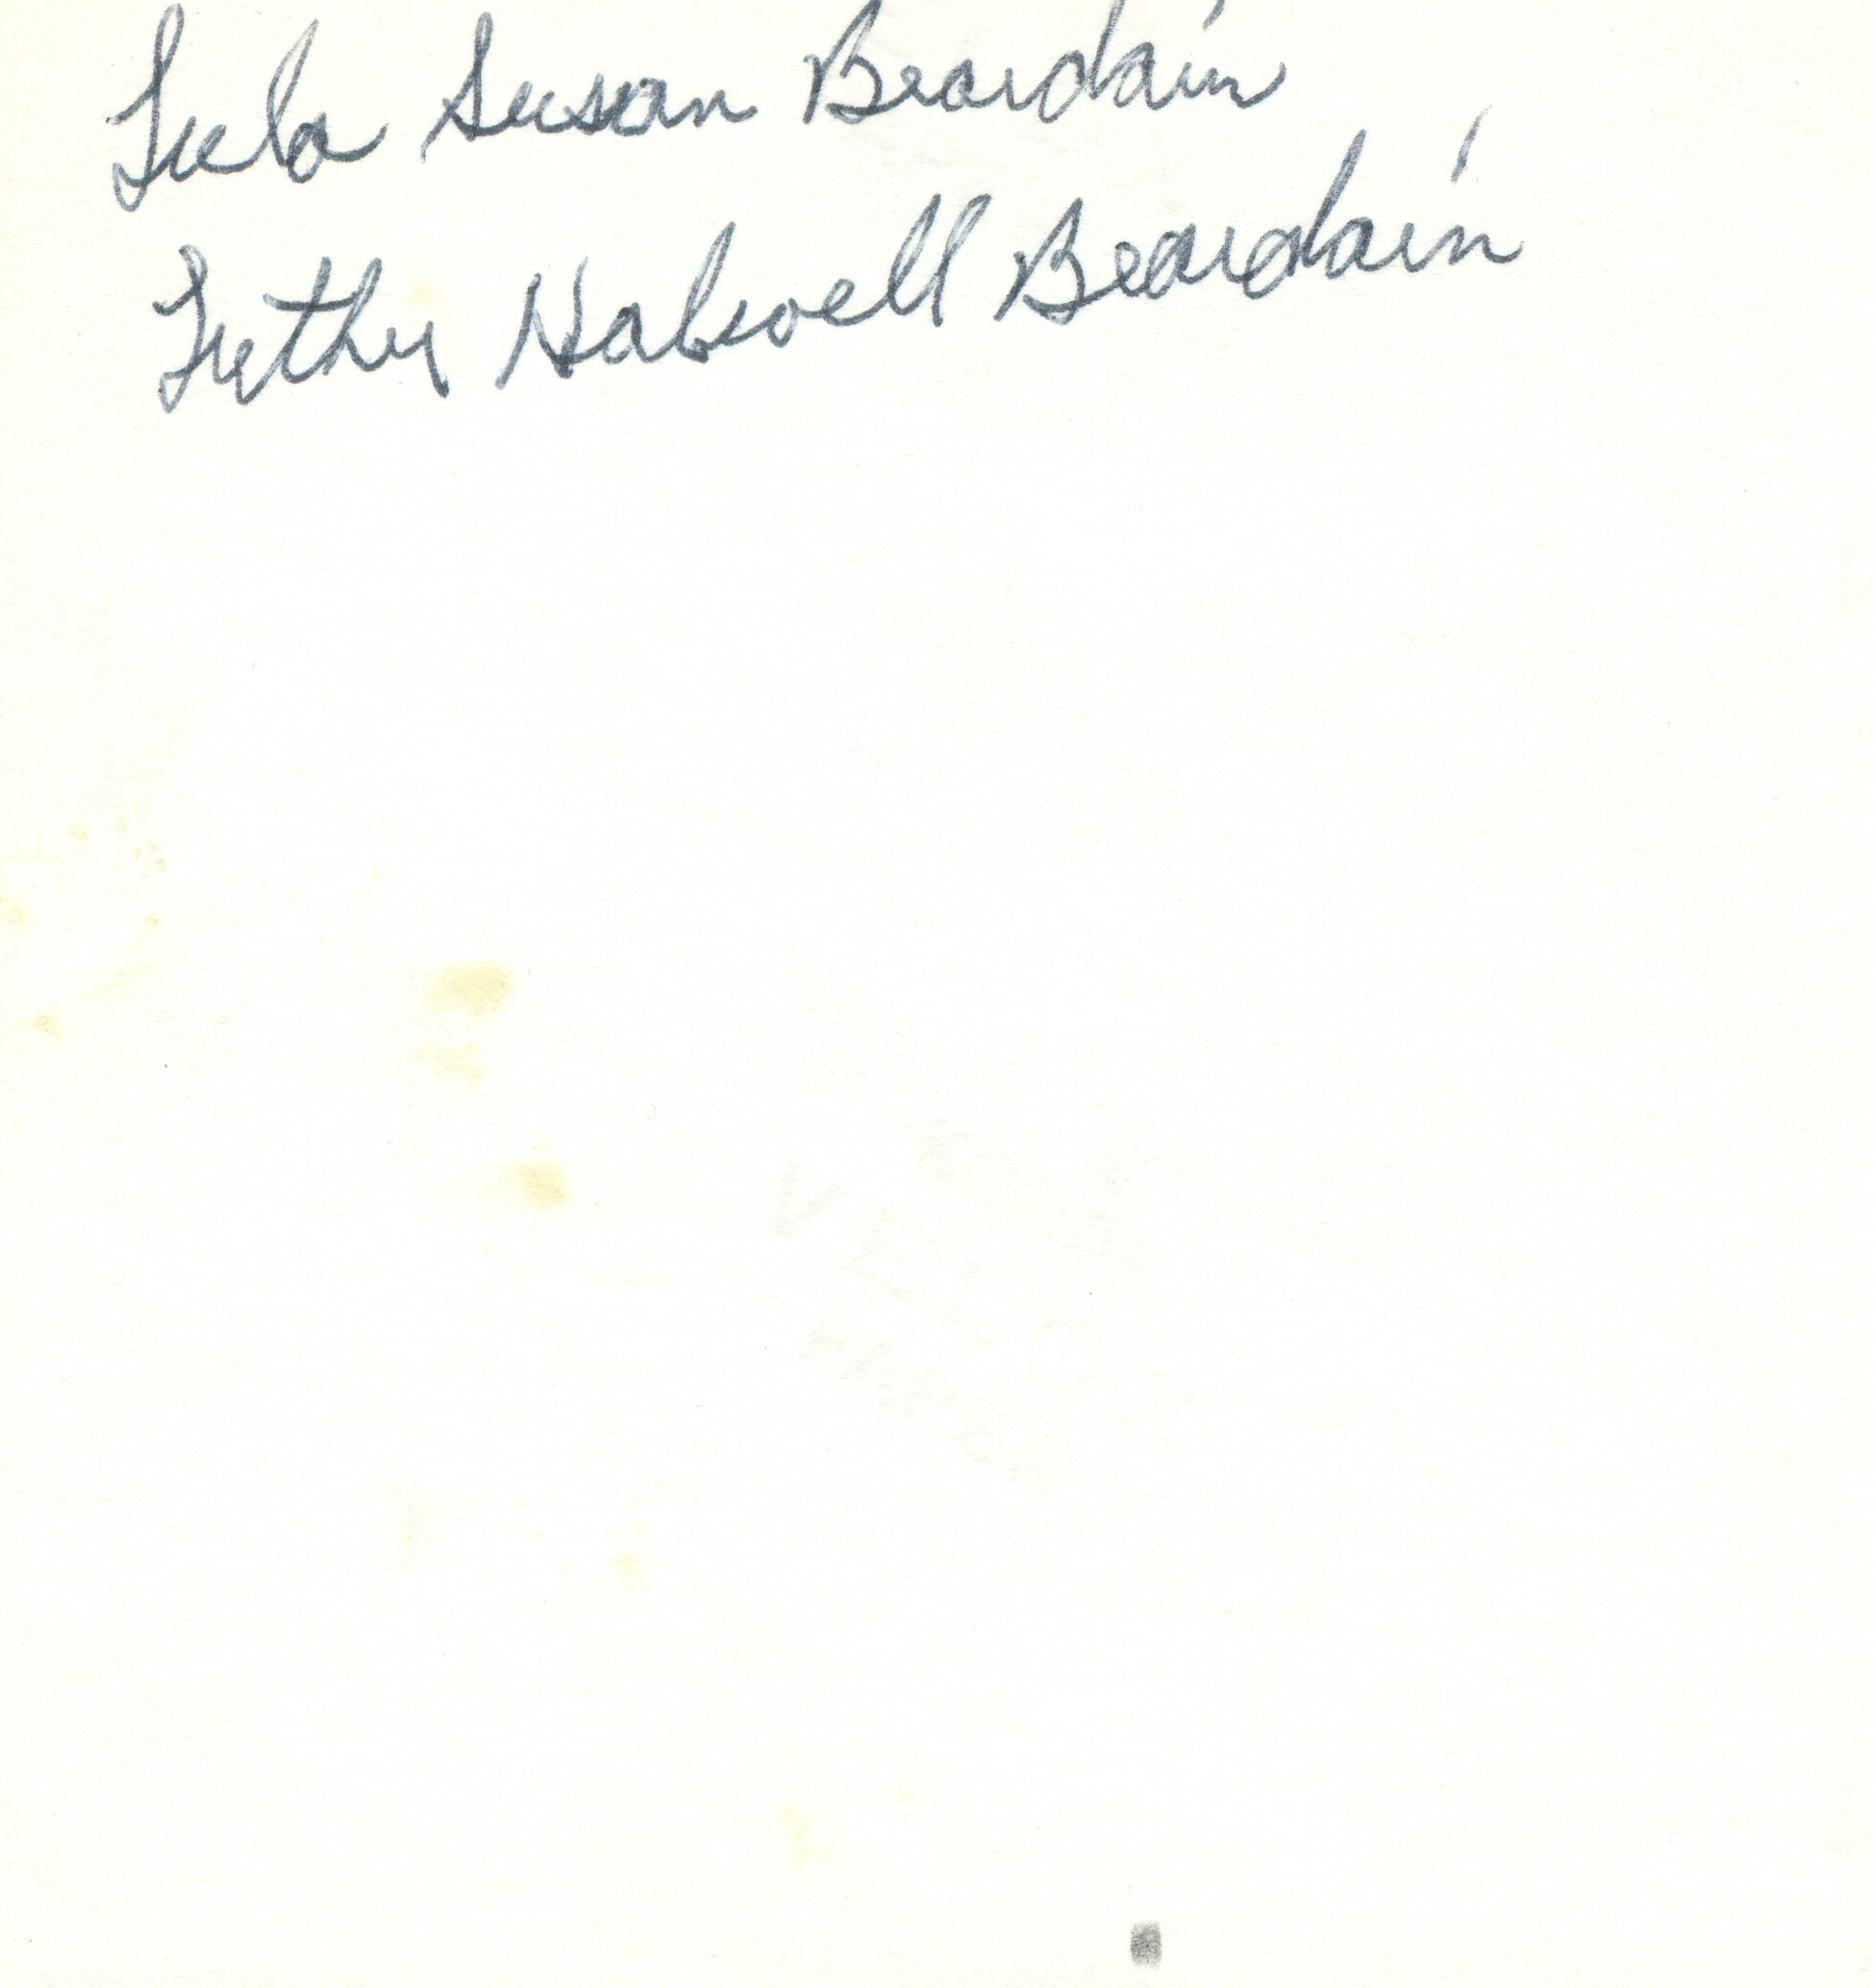 Lula Susan Beardain
Luther Halsell Beardain